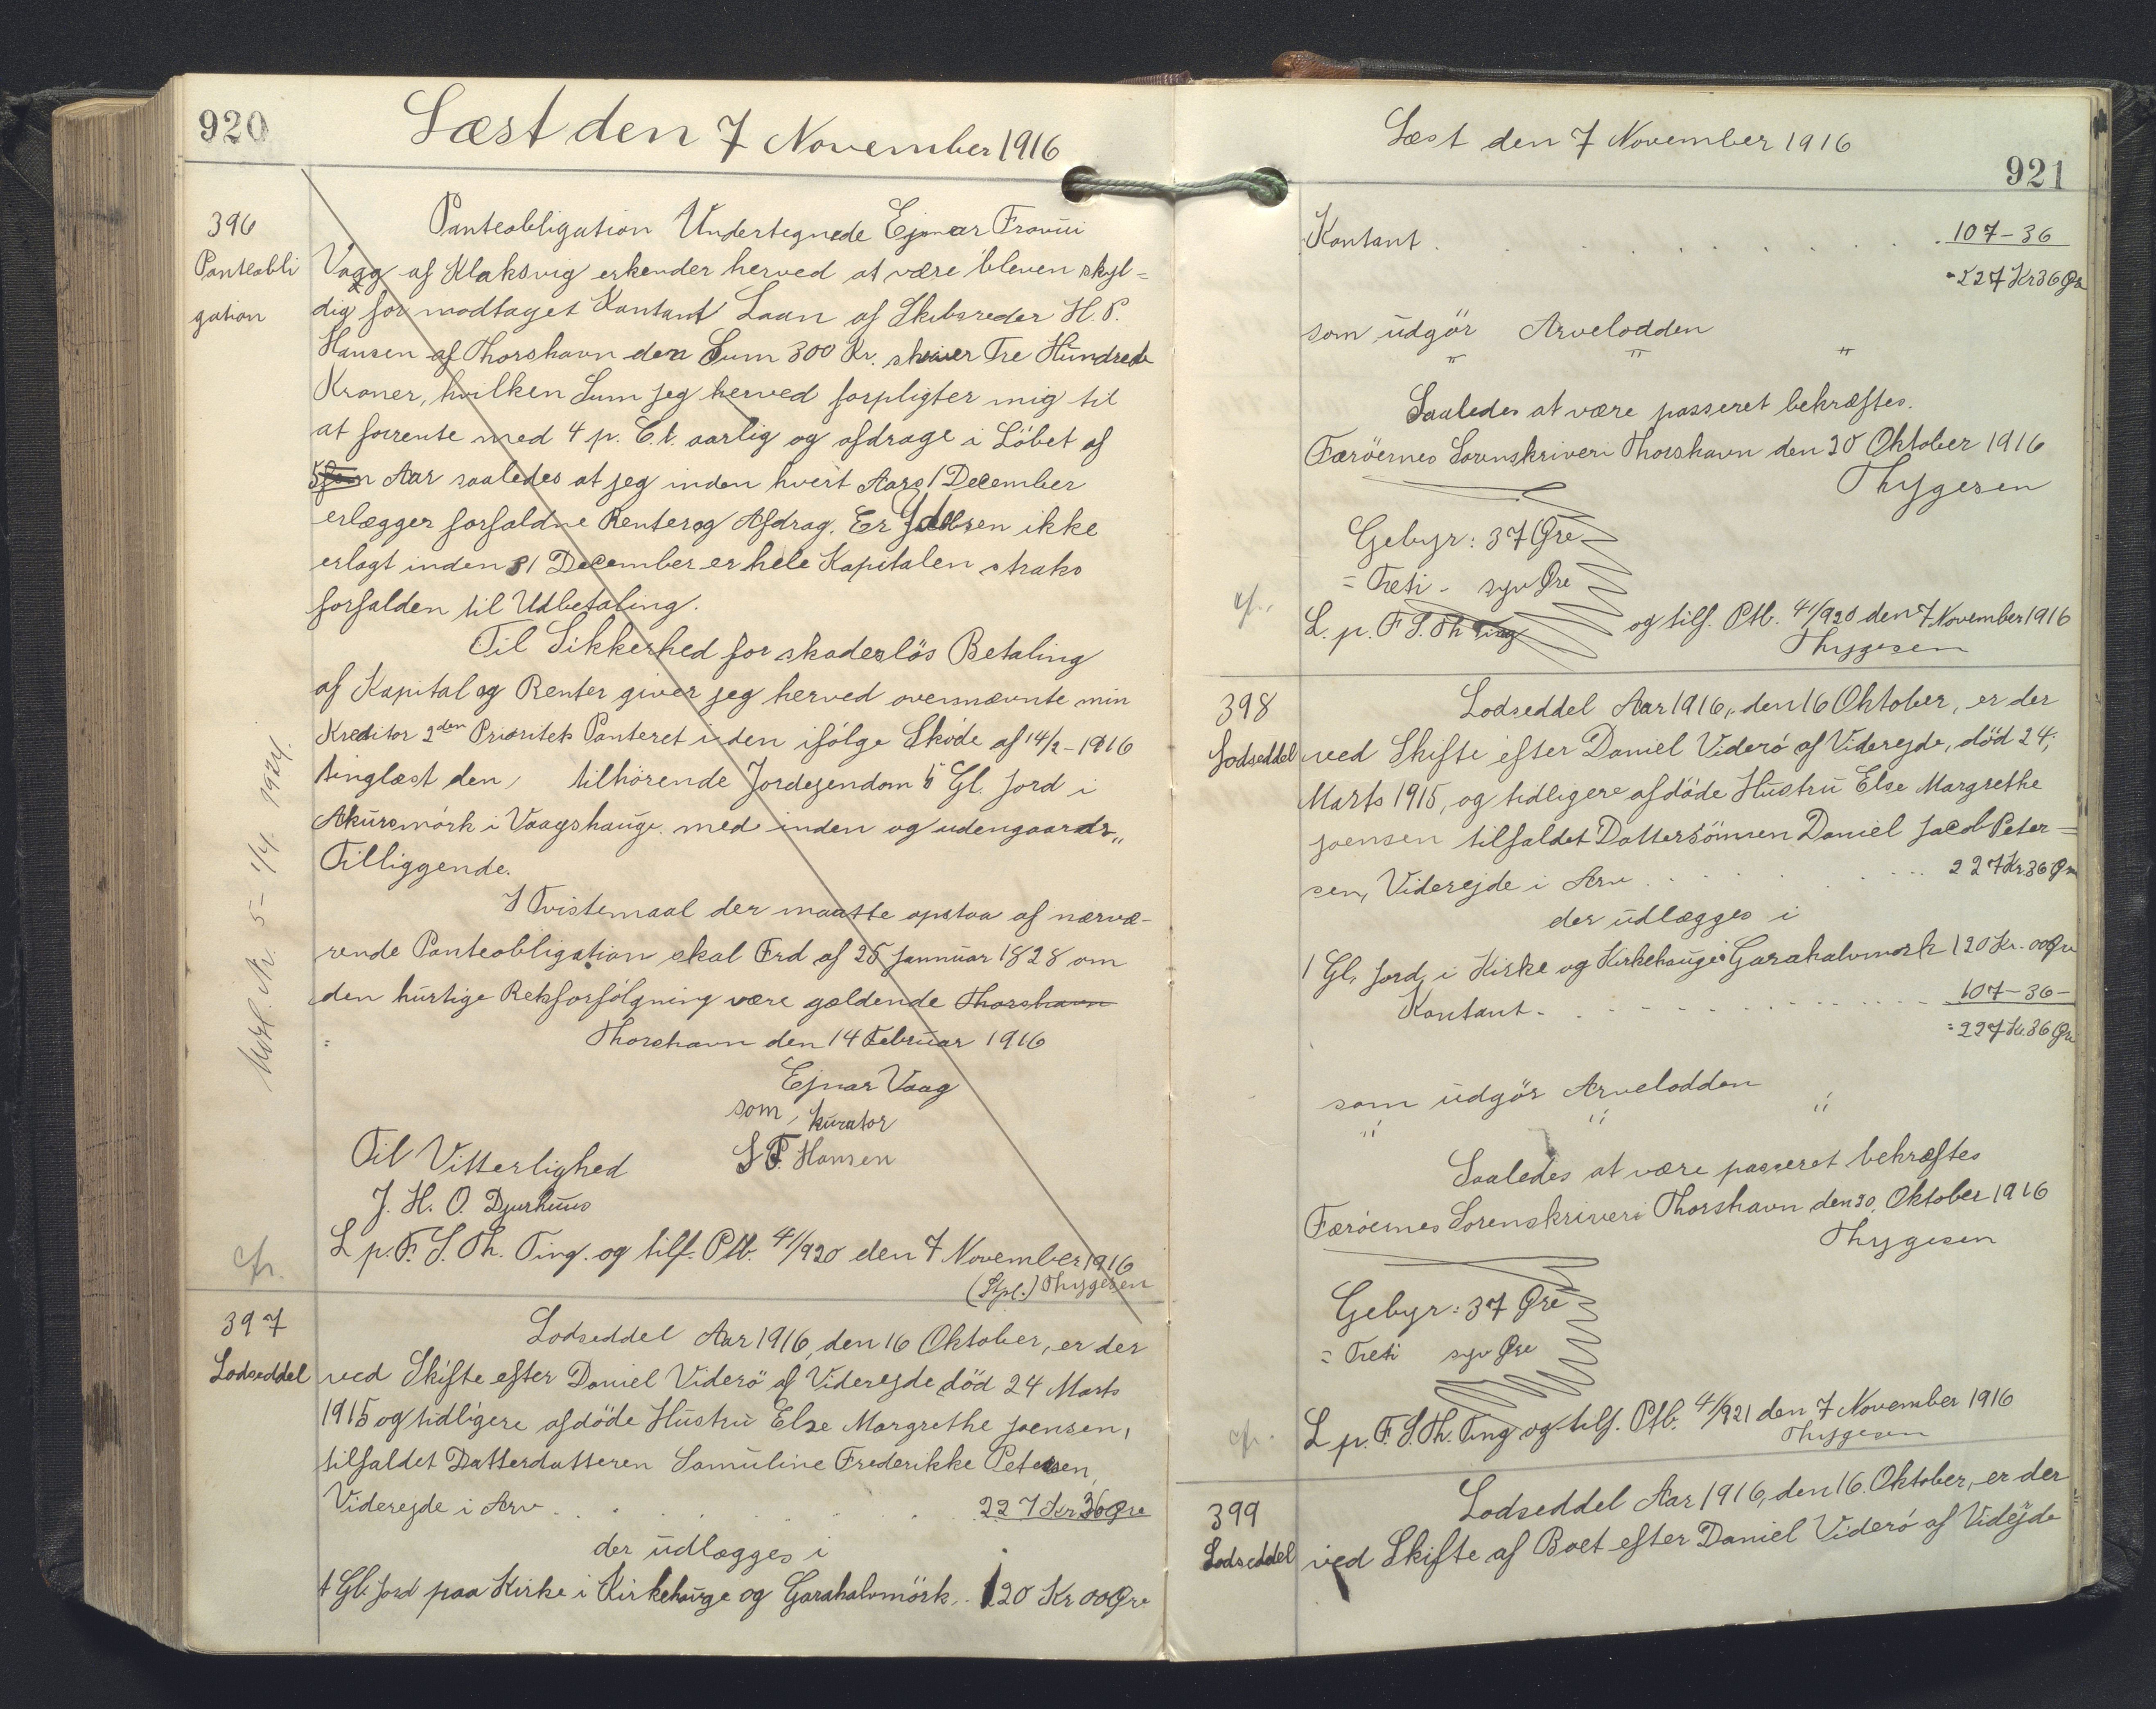 920
Læst den 7 November 1916
396
Panteobli
gation
Panteobligation Undertegnede Ejnar
Vagg af Klaksvig erkender herved at være bleven skyl=
dig for modtaget Kontant Laan af Skibsreder H. P.
Hansen af Thorshavn den Sum 300 Kr. skriver Tre Hundrede
Kroner, hvilken Sum jeg herved forpligter mig til
at forrente med 4 p. C.t. aarlig og afdrage i Löbet af
5 Aar saaledes at jeg inden hvert Aars 1 December
erlægger forfaldne Renter og Afdrag. Er Ydelsen ikke
erlagt inden 31 December er hele Kapitalen straks
forfalden til Udbetaling.
Til Sikkerhed for skadeslös Betaling
af Kapital og Renter giver jeg herved ovennævnte min
Kreditor 2den Prioritets Panteret i den ifölge Sköde af 14/2-1916
tinglæst den , tilhörende Jordejendom 5 Gl. Jord i
Akursmörk i Vaagshauge med inden og udengaards„
Tilliggende.
I Tvistemaal der maatte opstaa af nærvæ-
rende Panteobligation skal Frd af 25 Jannuar 1828 om
den hurtige Retsforfölgning være gældende Thorshavn
= Thorshavn den 14 Februar 1916
Ejnar Vaag
som kurator
S F. Hansen
Til Vitterlighed
J. H. O. Djurhuus
L p. F. S. Th. Ting. og tilf. Ptb. 41/920 den 7 November 1916
(Stpl.) Thygesen
cfr.
5- 1/4 1924.
397
Lodseddel
Lodseddel Aar 1916, den 16 Oktober, er der
ved Skifte efter Daniel Viderö af Viderejde död 24 Marts
1915 og tidligere afdöde Hustru Else Margrethe Joensen,
tilfaldet Datterdatteren Samuline Frederikke Petersen,
Viderejde i Arv . . . . 227 Kr 36 Øre
der udlægges i
1 Gl. Jord paa Kirke i Kirkehauge og Garahalvmörk. 120 Kr 00 Øre
Læst den 7 November 1916
921
Kontant . . . . 107-36
=227 Kr 36 Øre
som udgör Arvelodden
" " "
Saaledes at være passeret bekræftes.
Færöernes Sorenskriveri Thorshavn den 20 Oktober 1916
Thygesen
Gebyr: 37 Øre
= Treti- syv Øre
cfr.
L. p. F S. Th Ting og tilf. Ptb. 41/920 den 7 November 1916
Thygesen
398
Lodseddel
Lodseddel Aar 1916, den 16 Oktober, er der
ved Skifte efter Daniel Viderö af Viderejde, död 24,
Marts 1915, og tidligere afdöde Hustru Else Margrethe
Joensen tilfaldet Dattersönnen Daniel Jacob Peter=
sen, Viderejde i Arv . . . . 227 Kr. 36 Øre
der udlægges i
1 Gl. Jord i Kirke og Kirkehauge Garahalvmørk 120 Kr. 00 Øre
Kontant . . . . 107-36-
=227 Kr. 36 Øre
som udgör Arvelodden
" " "
Saaledes at være passeret bekræftes
Færöernes Sorenskriveri Thorshavn den 20. Oktober 1916
Thygesen
Gebyr: 37 Øre
= Treti syv Øre
cfr.
L p. F. S. Th. Ting og tilf. Ptb. 41/921 den 7 November 1916
Thygesen
399
Lodseddel
Lodseddel Aar 1916, den 16. Oktober, er der
ved Skifte af Boet efter Daniel Viderö af Viderejde